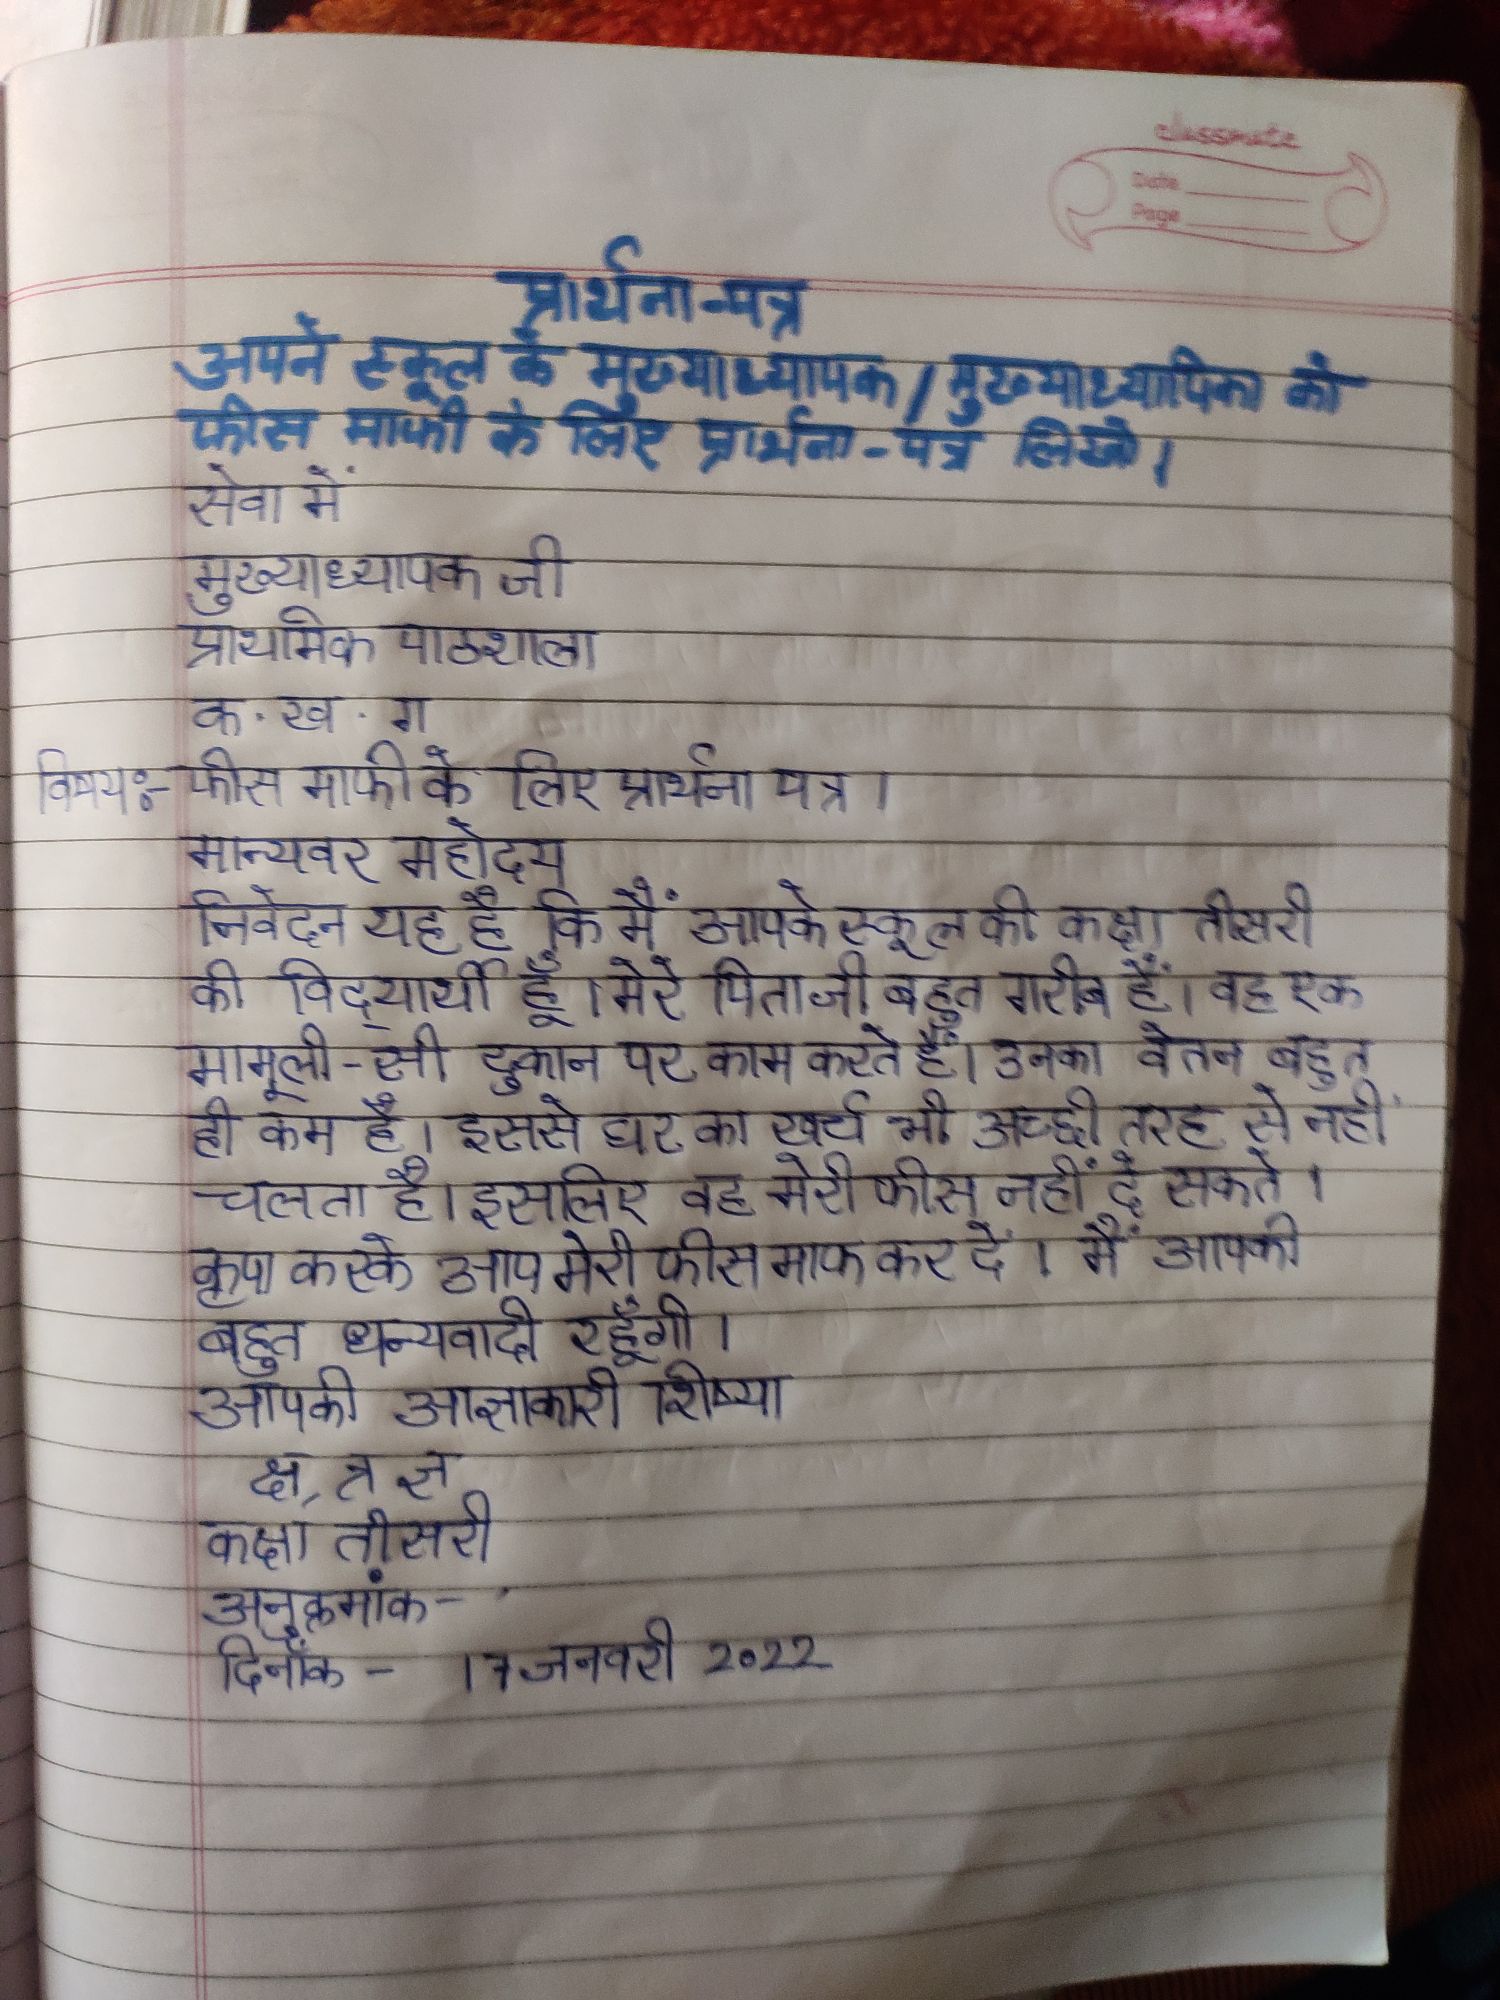 classmate
Date
Page
प्रार्थना-पत्र
अपने स्कूल के मुख्याध्यापक/मुख्याध्यापिका को
फीस माफी के लिए प्रार्थना-पत्र लिखो।
सेवा में
मुख्याध्यापक जी
प्राथमिक पाठशाला
क. ख. ग
विषय:- फीस माफी के लिए प्रार्थना पत्र।
मान्यवर महोदय
निवेदन यह है कि मैं आपके स्कूल की कक्षा तीसरी
की विद्यार्थी हूँ। मेरे पिताजी बहुत गरीब हैं। वह एक
मामूली-सी दुकान पर काम करते हैं। उनका वेतन बहुत
ही कम है। इससे घर का खर्च भी अच्छी तरह से नहीं
चलता है। इसलिए वह मेरी फीस नहीं दे सकते।
कृपा करके आप मेरी फीस माफ कर दें। मैं आपकी
बहुत धन्यवादी रहूँगी।
आपकी आज्ञाकारी शिष्या
क्ष, त्र ज्ञ
कक्षा तीसरी
अनुक्रमांक-
दिनाँक - 17 जनवरी 2022